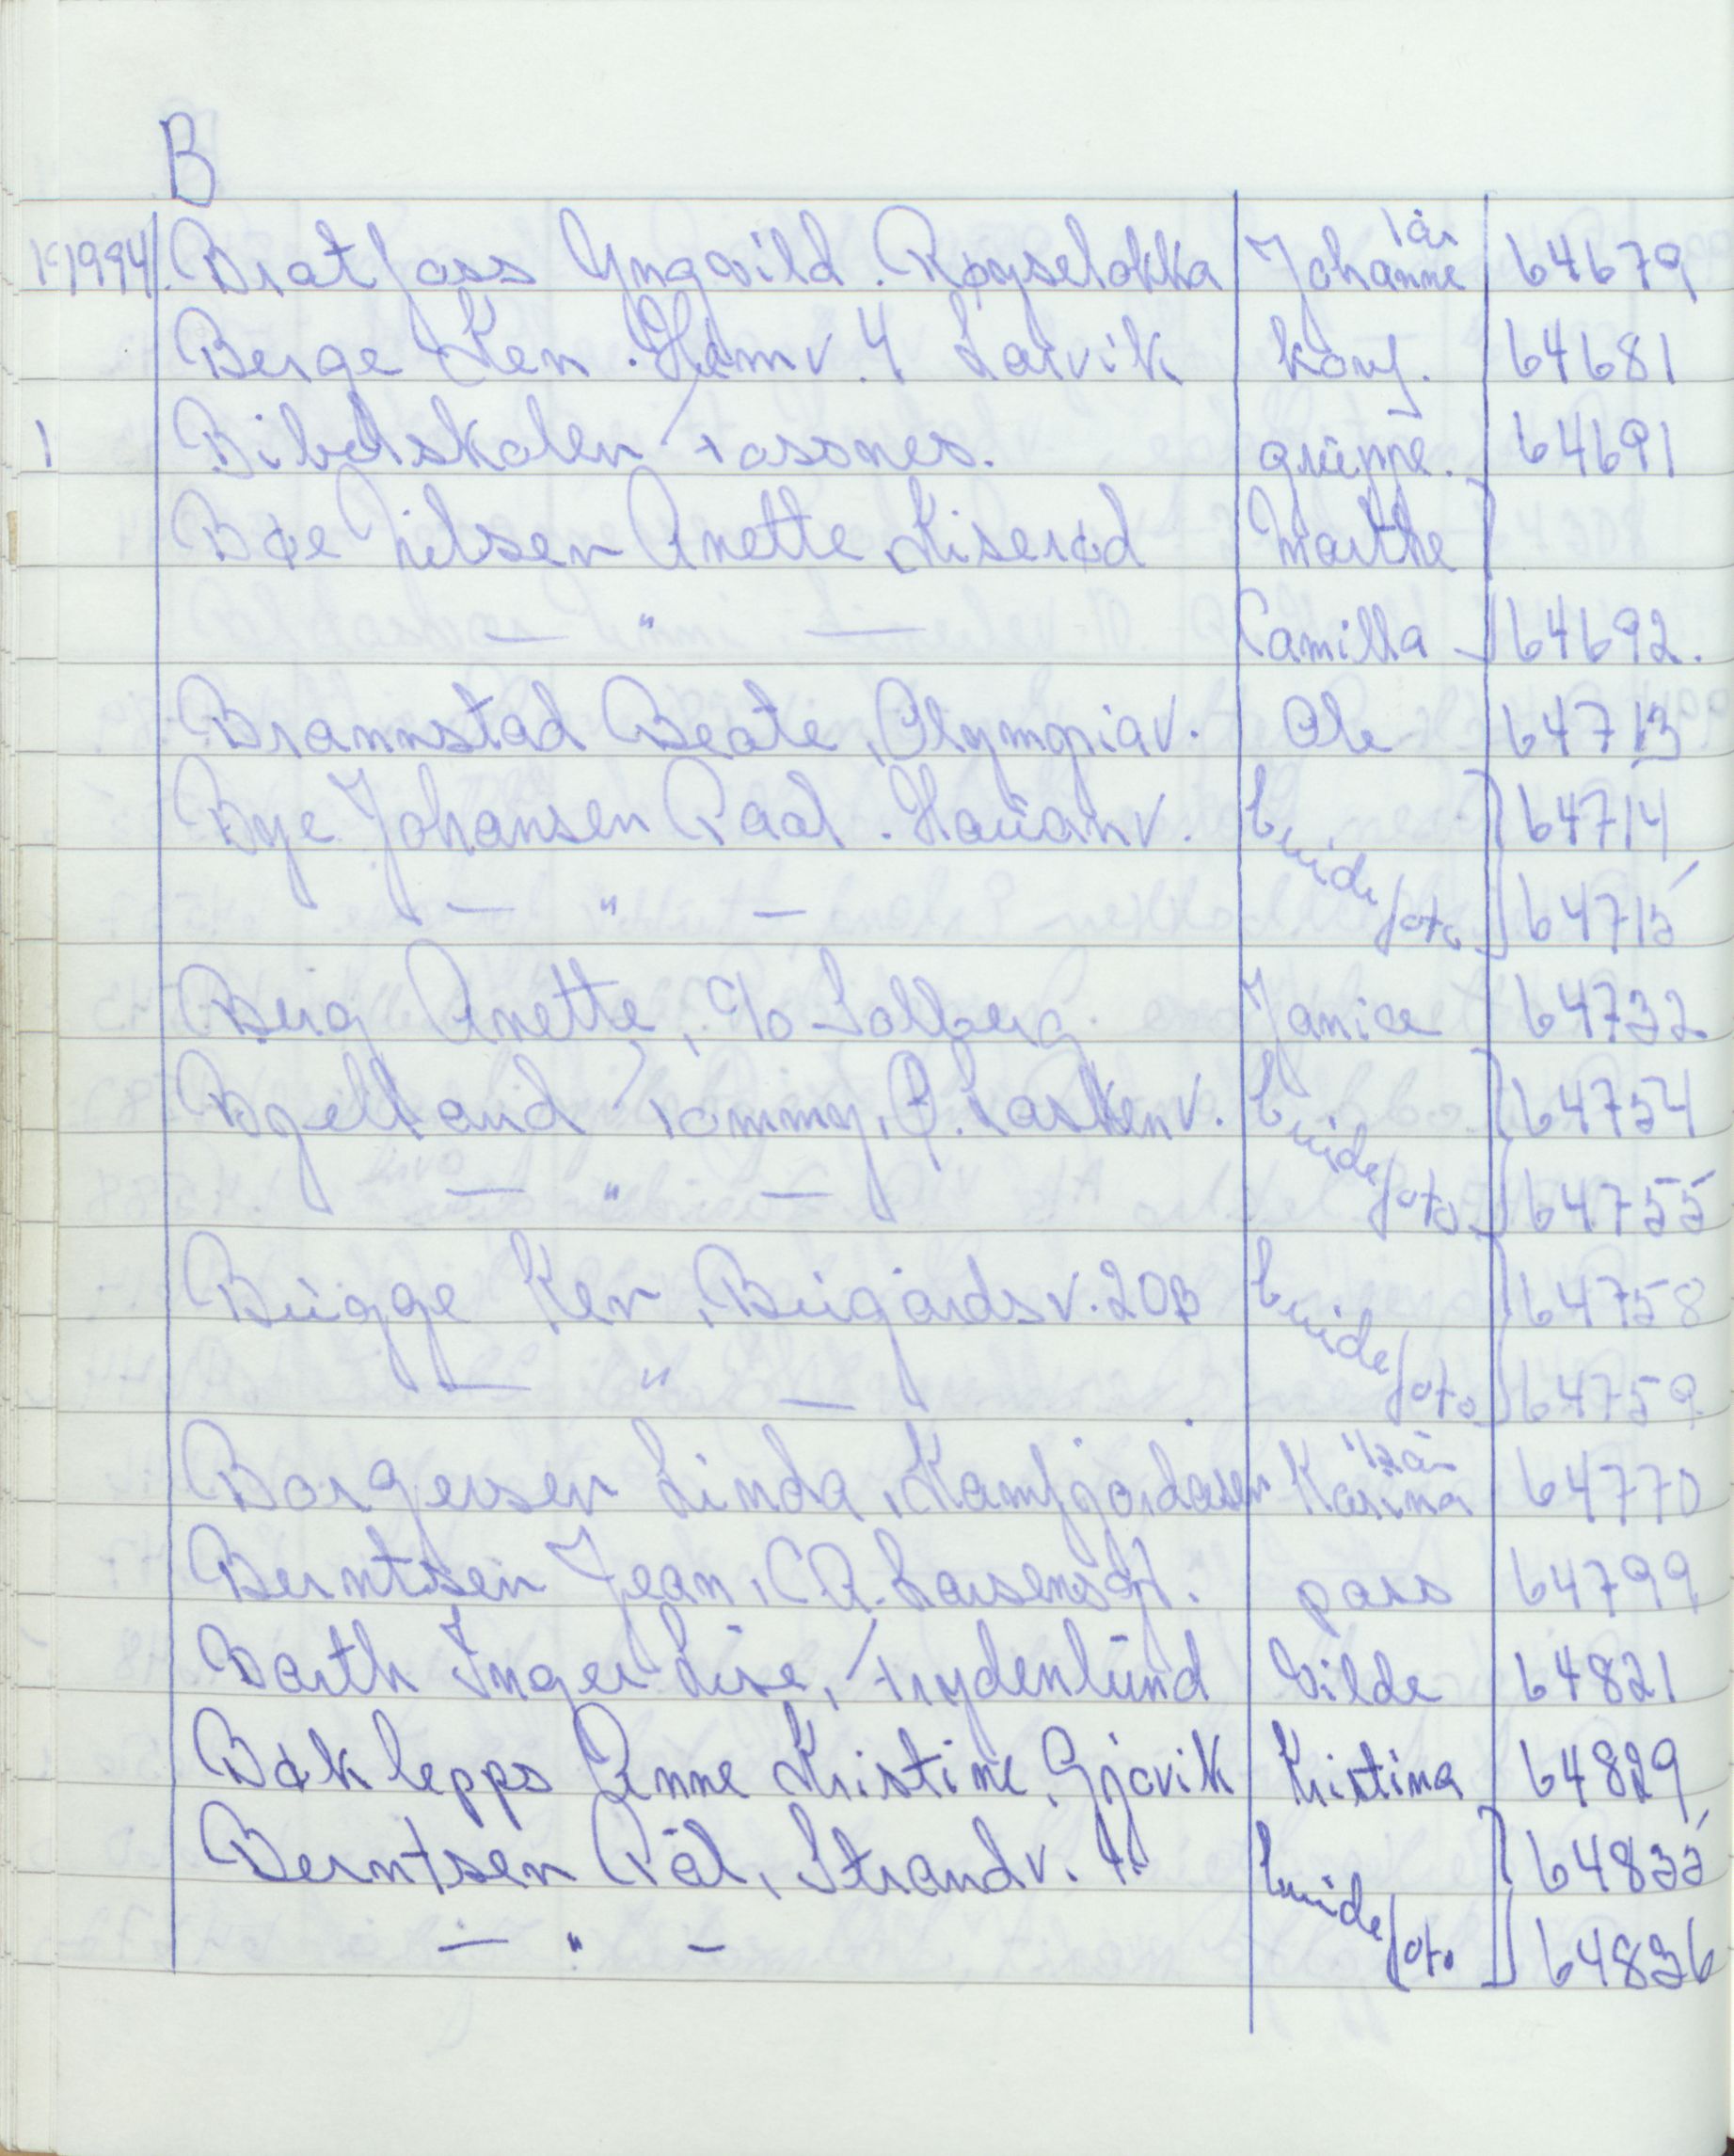 B
1994 Bratfoss Yngvild. Røyseløkka Johanne 1 år 64679
Berge Ken. Hamv. 4 Larvik konf. 64681
1 Bibelskolen Fossnes. gruppe. 64691
Bøe Nilsen Anette, Kiserød Marthe
— " — Camilla 64692.
Brannstad Beate, Olympiav. Ole 64713
Bye Johansen Paal. Hauanv. brude 64714
— " — foto 64715
Berg Anette, c/o Solberg Janice 64732
Bjelland Tommy, Ø. v. brude 64754
— " — foto 64755
Bugge Ken, Bugårdsv. 20B brude 64758
— " — foto 64759
Borgersen Linda, Kamfjordåsen Karina 1/2 år 64770
Berntsen Jean, C.A. Larsensgt. pass 64799
Barth Inger Lise, Frydenlund Vilde 64821
Bøklepps Anne Kristine, Gjøvik Kristina 64829
Berntsen Pål, Strandv. brude 64835
— " — foto 64836